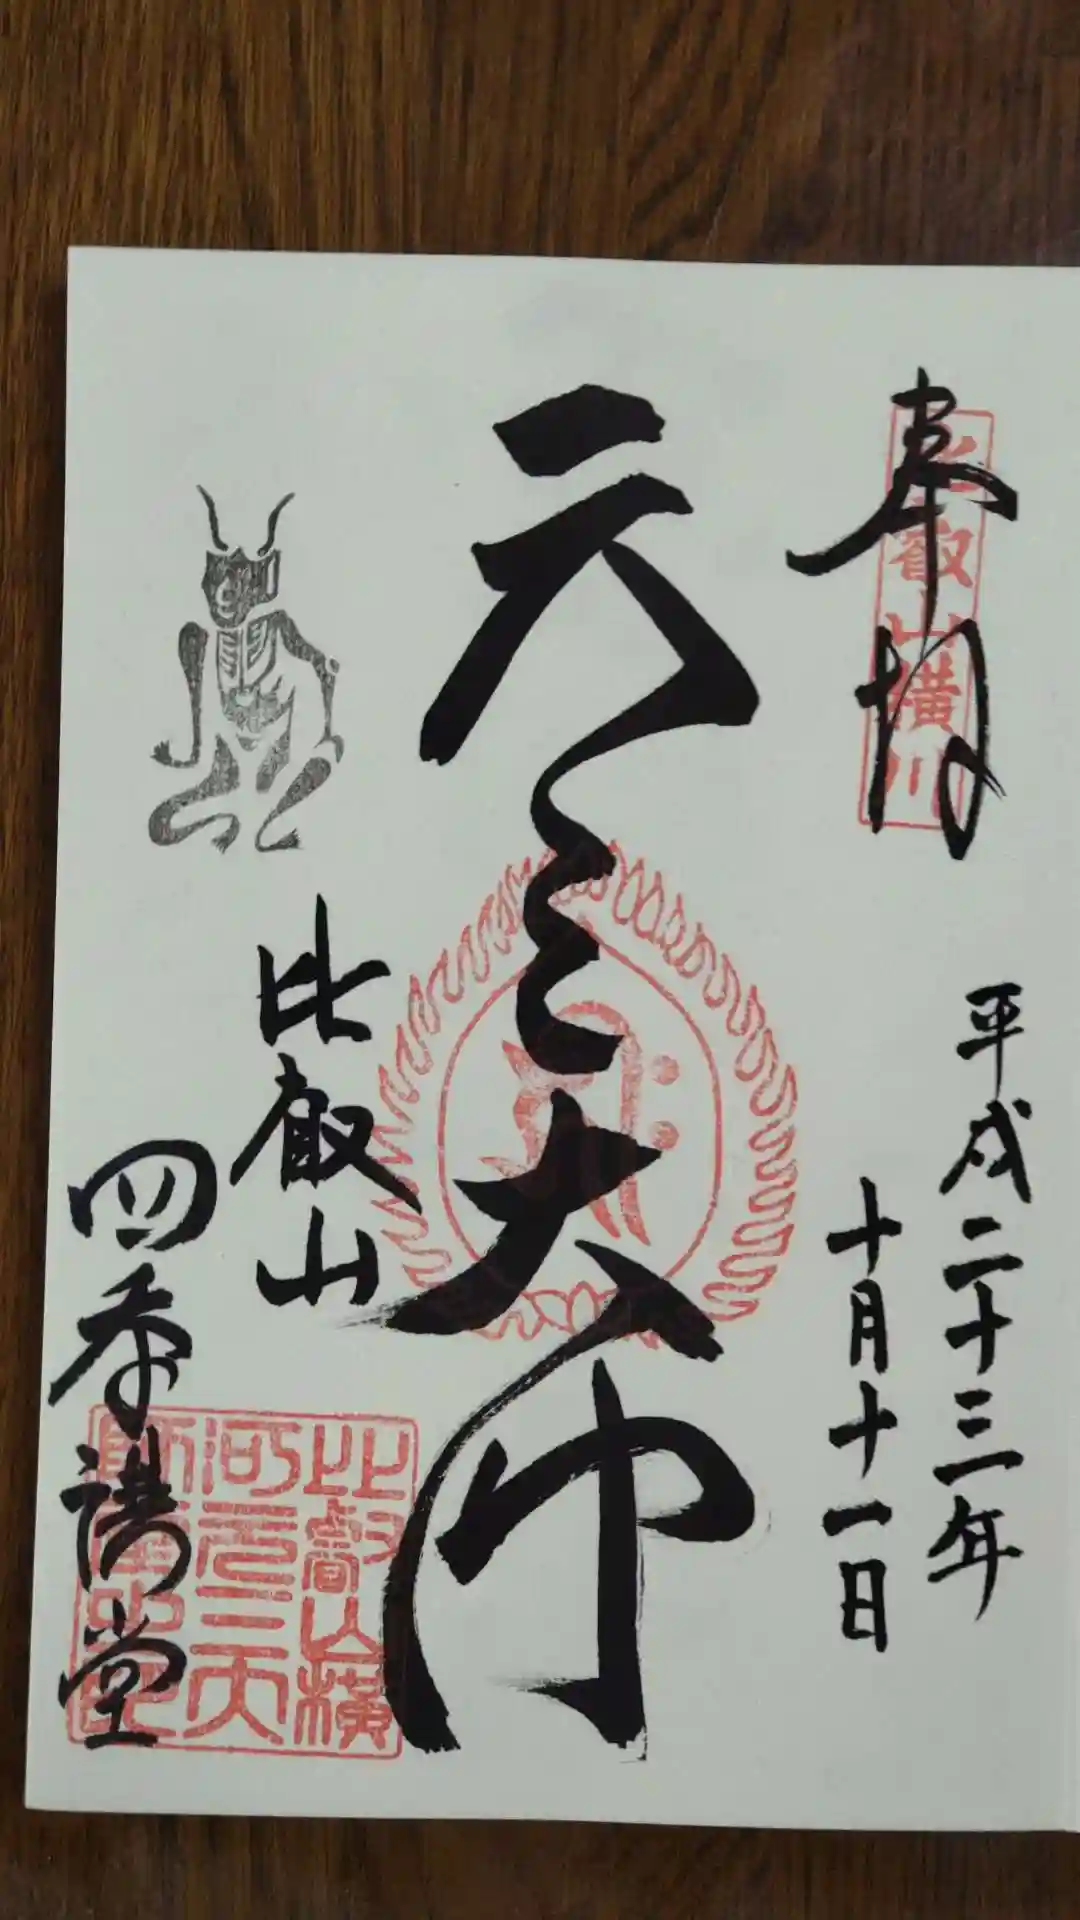 奉拝
比叡山横川
平成二十三年
十月十一日
元三大师
比叡山
四季講堂
比叡山横
河元三大
師